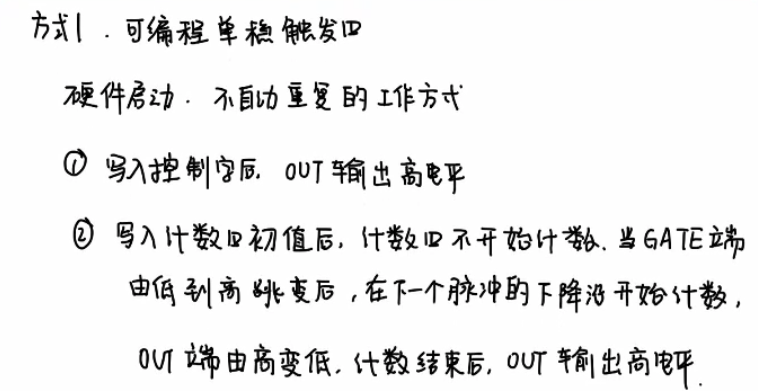 方式1. 可编程单稳触发四
硬件启动. 不自动重复的工作方式
① 写入控制字后. OUT输出高电平
② 写入计数四初值后, 计数四不开始计数. 当GATE端
由低到高跳变后, 在下一个脉冲的下降沿开始计数,
OUT端由高变低. 计数结束后, OUT输出高电平.